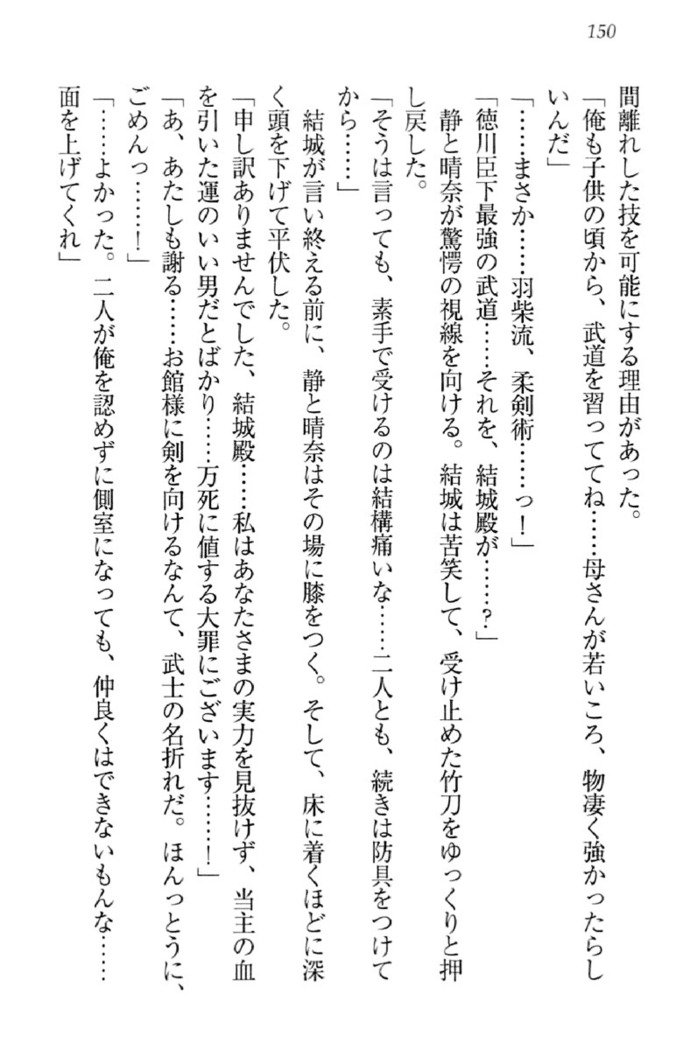 150
間離れした技を可能にする理由があった。
「俺も子供の頃から、武道を習っててね……母さんが若いころ、物凄く強かったらし
いんだ」
「……まさか……羽柴流、柔剣術……っ！」
「徳川臣下最強の武道……それを、結城殿が……？」
静と晴奈が驚愕の視線を向ける。結城は苦笑して、受け止めた竹刀をゆっくりと押
し戻した。
「そうは言っても、素手で受けるのは結構痛いな……二人とも、続きは防具をつけて
から……」
結城が言い終える前に、静と晴奈はその場に膝をつく。そして、床に着くほどに深
く頭を下げて平伏した。
「申し訳ありませんでした、結城殿……私はあなたさまの実力を見抜けず、当主の血
を引いた運のいい男だとばかり……万死に値する大罪にございます……！」
「あ、あたしも謝る……お館様に剣を向けるなんて、武士の名折れだ。ほんっとうに、
ごめんっ……！」
「……よかった。二人が俺を認めずに側室になっても、仲良くはできないもんな……
面を上げてくれ」